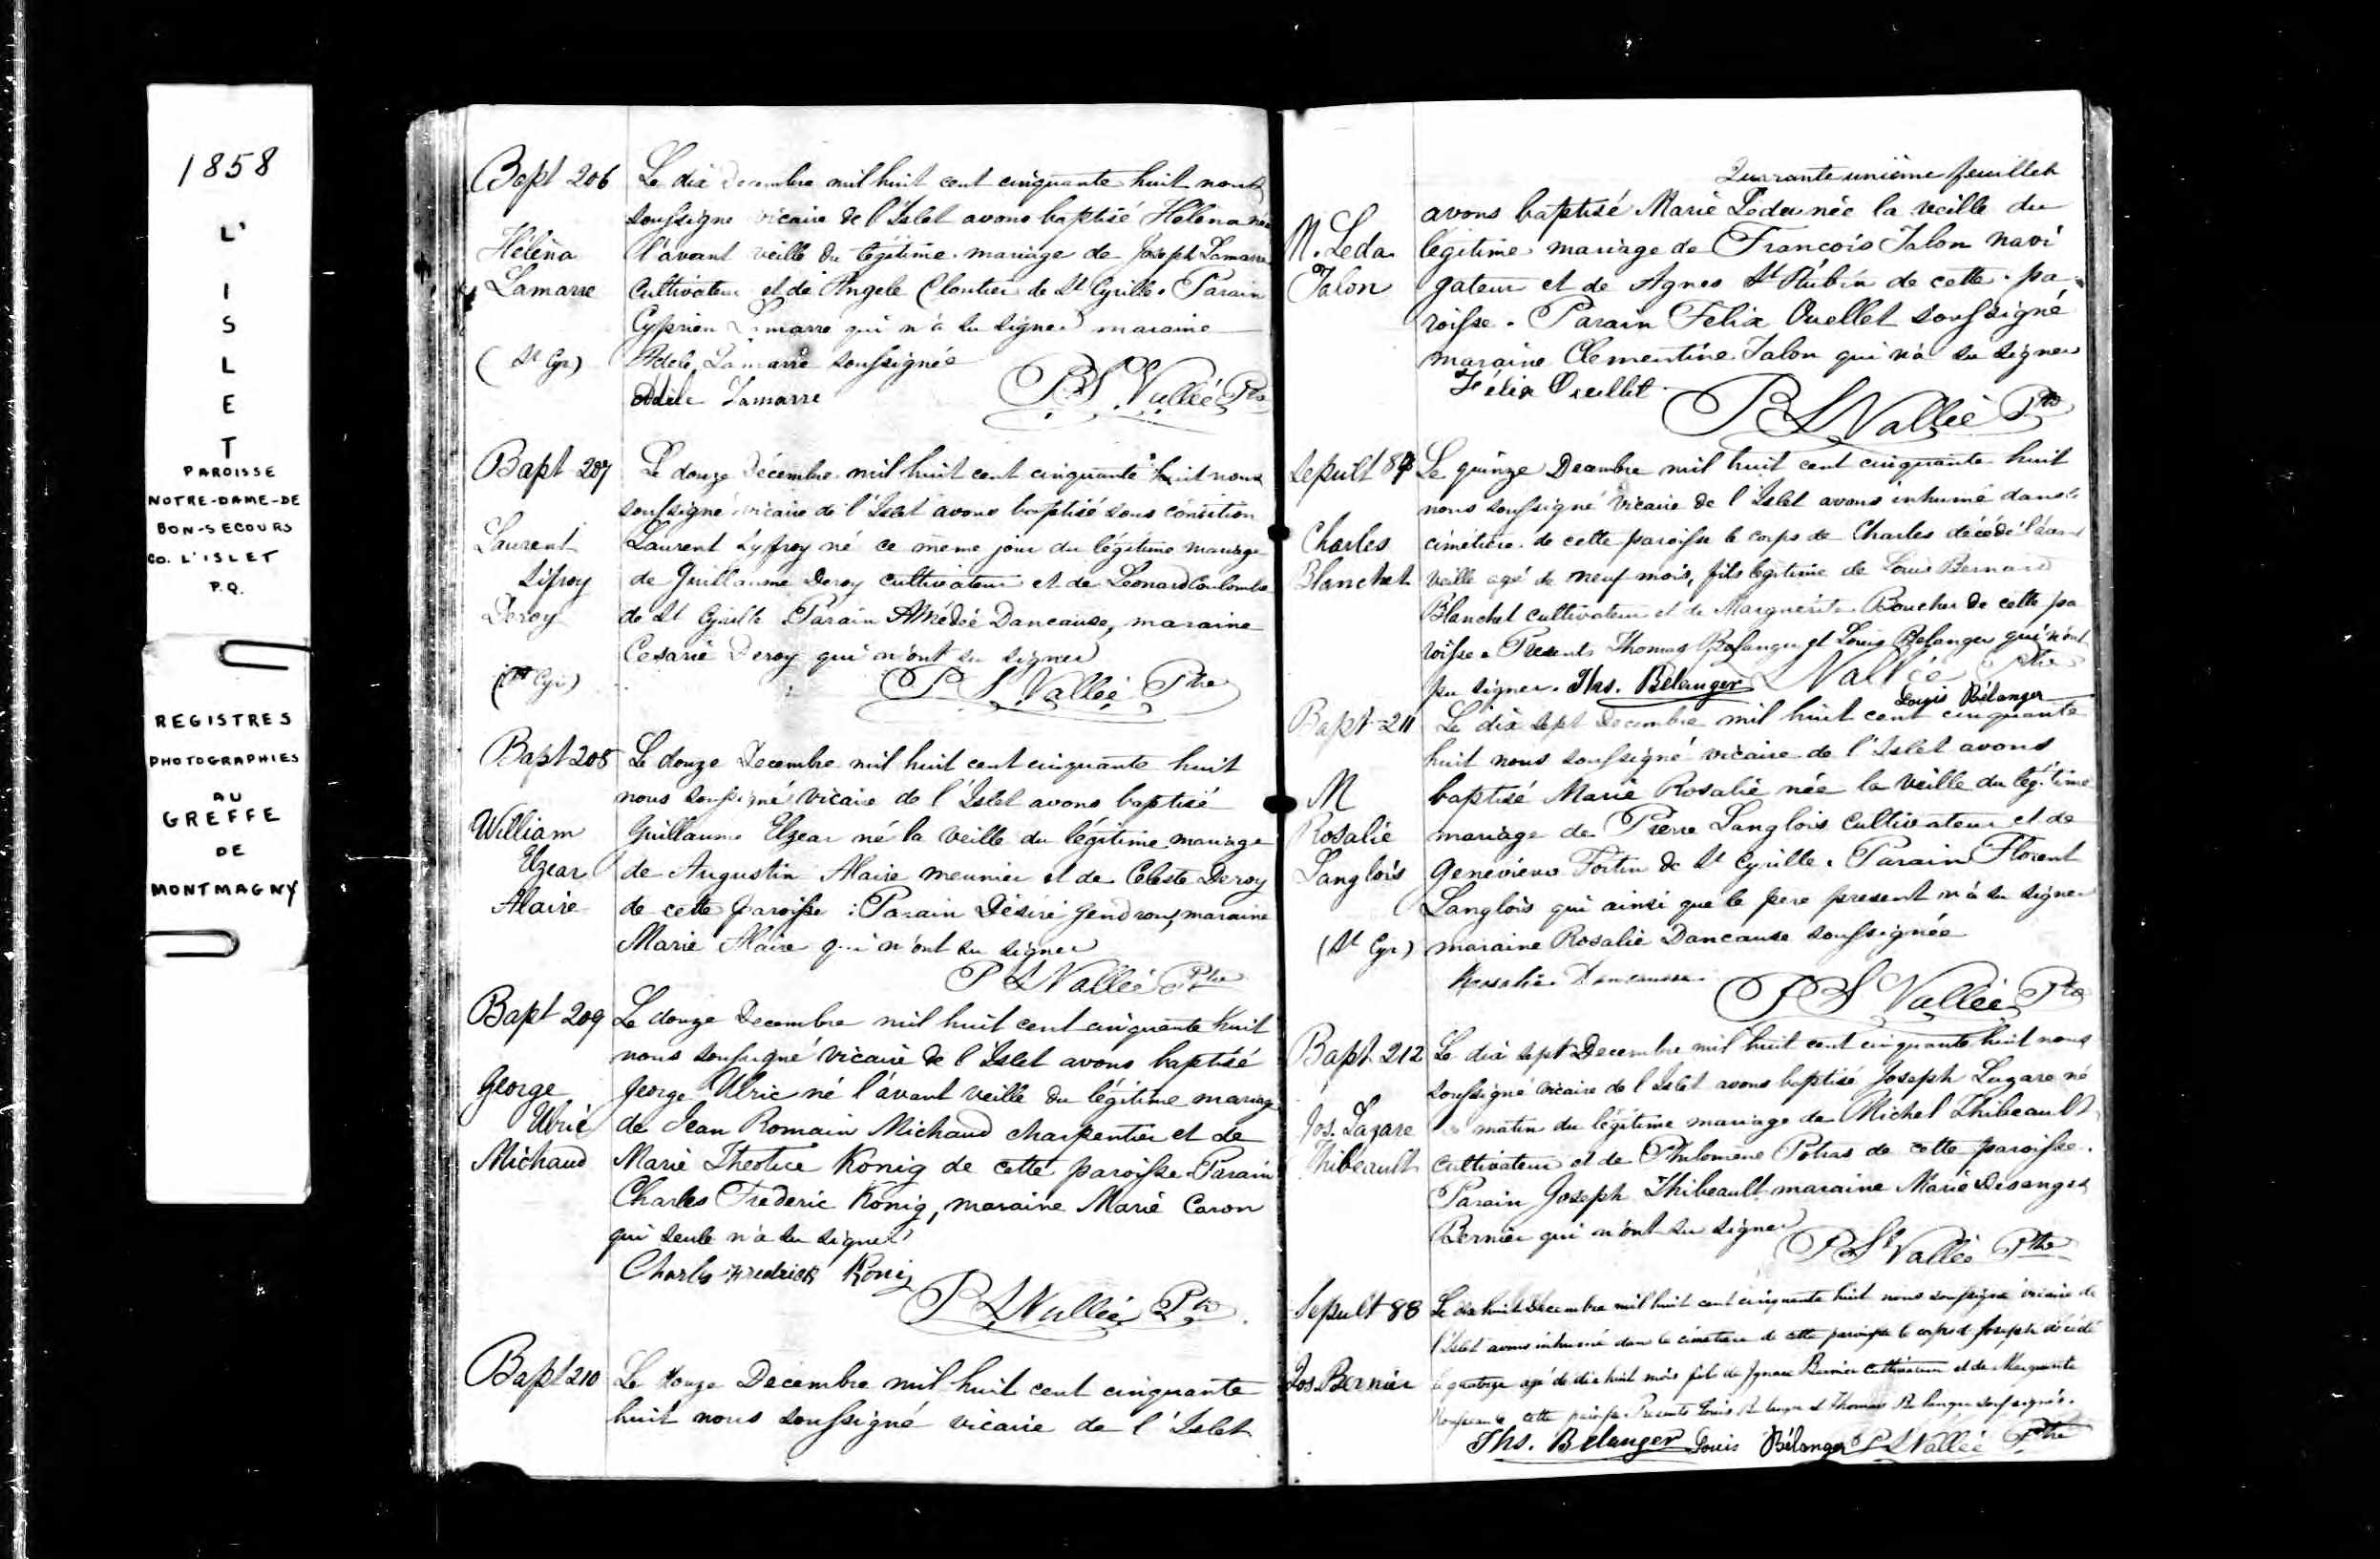 1858
L'
I
S
L
E
T
PAROISSE
NOTRE-DAME-DE
BON-SECOURS
CO. L'ISLET
P.Q.
REGISTRES
PHOTOGRAPHIES
AU
GREFFE
DE
MONTMAGNY
Bapt 206
Héléna
Lamarre
(St Cyr)
Le dix Decembre mil huit cent cinquante huit nous
soussigné vicaire de l'Islet avons baptisé Héléna née
l'avant veille du légitime mariage de Joseph Lamarre
cultivateur et de Angele Cloutier de St Cyrille. Parain
Cyprien Lamarre qui n'a su signer maraine
Adele Lamarre soussignée
Adèle Lamarre PS Vallée Ptre
Bapt 207
Laurent
Sifroy
Deroy
(St Cyr)
Le douze Décembre mil huit cent cinquante huit nous
soussigné vicaire de l'Islet avons baptisé sous condition
Laurent Syfroy né ce même jour du légitime mariage
de Guillaume Deroy cultivateur et de Léonard Coulombe
de St Cyrille Parain Amédée Dancause, maraine
Cesarie Deroy qui n'ont su signer
PS Vallée Ptre
Bapt 208
William
Elzear
Alaire
Le douze Decembre mil huit cent cinquante huit
nous soussigné vicaire de l'Islet avons baptisé
Guillaume Elzear né la veille du légitime mariage
de Augustin Alaire meunier et de Celeste Deroy
de cette paroisse : Parain Désiré Gendron, maraine
Marie Alaire qui n'ont su signer
PS Vallée Ptre
Bapt 209
George
Ulric
Michaud
Le douze Decembre mil huit cent cinquante huit
nous soussigné vicaire de l'Islet avons baptisé
George Ulric né l'avant veille du légitime mariage
de Jean Romain Michaud charpentier et de
Marie Theotice Konig de cette paroisse. Parain
Charles Frederic Konig, maraine Marie Caron
qui seule n'a su signer
Charles Fredrick Konig
PS Vallée Ptre
Bapt 210
Le douze Decembre mil huit cent cinquante
huit nous soussigné vicaire de l'Islet
Quarante unième feuillet
M. Leda
Talon
avons baptisé Marie Léda née la veille du
légitime mariage de François Talon navi
gateur et de Agnes St Aubin de cette pa
roisse. Parain Felix Ouellet soussigné
maraine Clementine Talon qui n'a su signer
Félix Ouellet PS Vallée Ptre
Sepult 87
Charles
Blanchet
Le quinze Decembre mil huit cent cinquante huit
nous soussigné vicaire de l'Islet avons inhumé dans le
cimétière de cette paroisse le corps de Charles décédé l'avant
veille agé de neuf mois, fils légitime de Louis Bernard
Blanchet cultivateur et de Marguerite Boucher de cette pa
roisse. Presents Thomas Belanger et Louis Belanger qui n'ont
pu signer. Ths. Bélanger Vallée Ptre
Louis Bélanger
Bapt 211
M
Rosalie
Langlois
(St Cyr)
Le dix sept Decembre mil huit cent cinquante
huit nous soussigné vicaire de l'Islet avons
baptisé Marie Rosalie née la veille du légitime
mariage de Pierre Langlois cultivateur et de
Genevieve Fortin de St Cyrille. Parain Florent
Langlois qui ainsi que le pere present n'a su signer
maraine Rosalie Dancause soussignée
Rosalie Dancause PS Vallée Ptre
Bapt 212
Jos. Lazare
Thibeault
Le dix sept Decembre mil huit cent cinquante huit nous
soussigné vicaire de l'Islet avons baptisé Joseph Lazare né
matin du légitime mariage de Michel Thibeault
cultivateur et de Philomène Potras de cette paroisse.
Parain Joseph Thibeault maraine Marie Desanges
Bernier qui n'ont su signer
PS Vallée Ptre
Sepult 88
Jos. Bernier
Le dix huit Decembre mil huit cent cinquante huit nous soussigné vicaire de
l'Islet avons inhumé dans le cimetiere de cette paroisse le corps de Joseph décédé
le quatorze agé de dix huit mois fils de Ignace Bernier cultivateur et de Marguerite
cette paroisse. Presents Louis Belanger et Thomas Belanger soussignés.
Ths. Bélanger Louis Bélanger PS Vallée Ptre